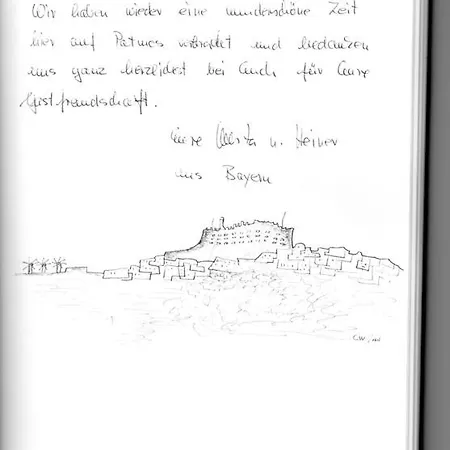 Wir haben wieder eine wunderschöne Zeit
hier auf Patmos verbracht und bedanken
uns ganz herzlichst bei Euch für Eure
Gastfreundschaft.
Eure u. Heiner
aus Bayern